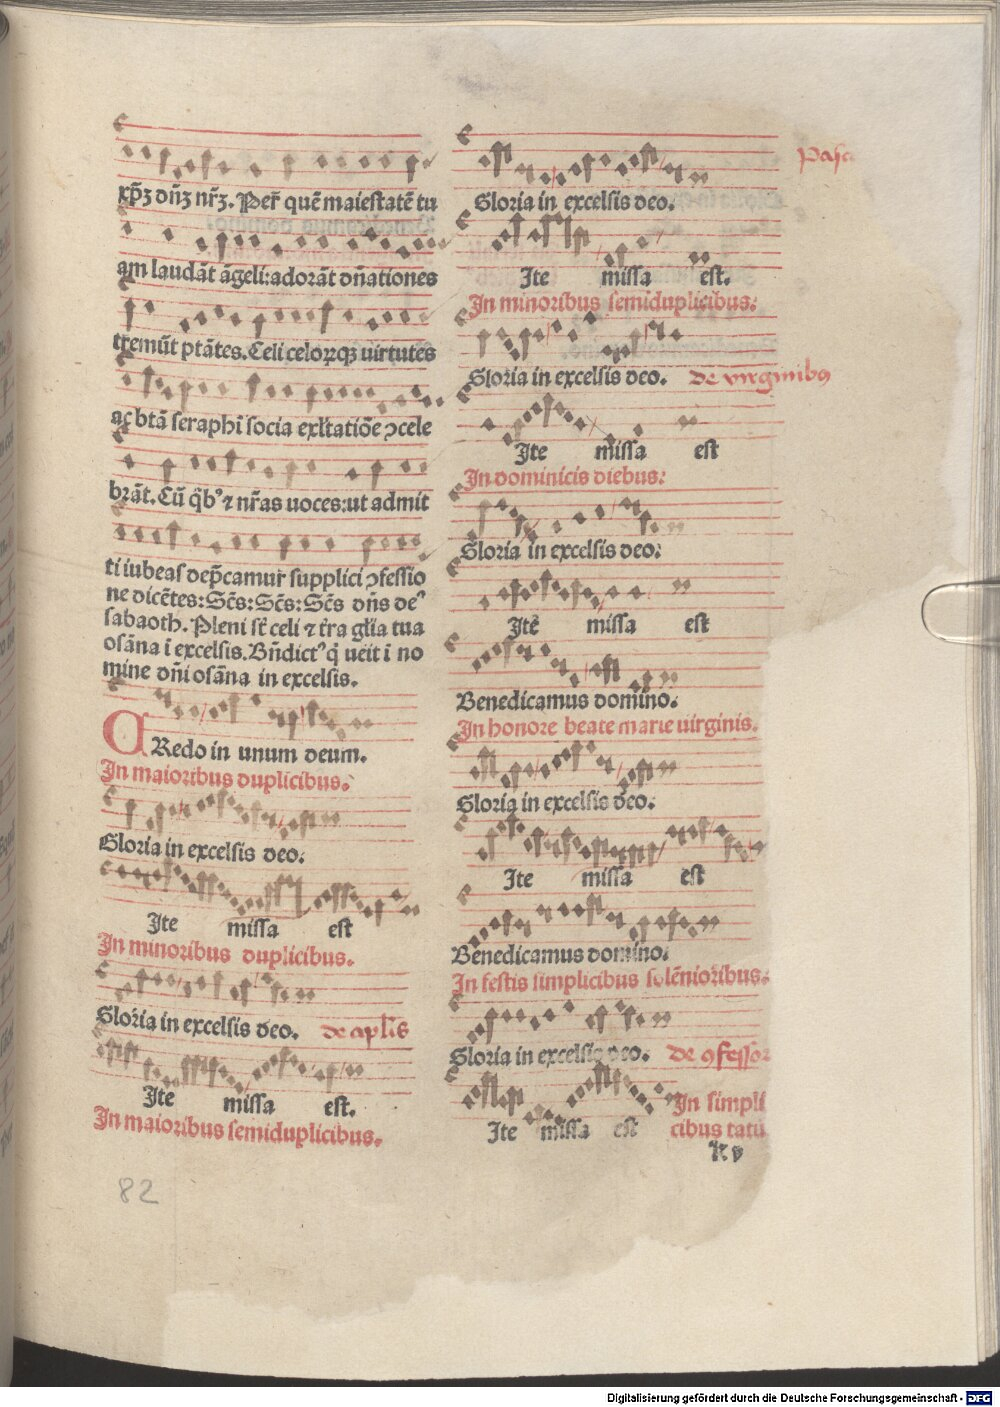 xp̄ꝫ dn̄ꝫ nr̄ꝫ. Per̄ quē maiestatē tu
am laudāt āgeli: adorāt dn̄ationes
tremūt ptātes. Celi celoꝝqꝫ uirtutes
ac btā seraphi socia exl̄tatiōe ↄcele
brāt. Cū q̄bꝰ ⁊ nr̄as uoces: ut admit
ti iubeas dep̄camur supplici ↄfessio
ne dicētes: Sc̄s: Sc̄s: Sc̄s dn̄s deꝰ
sabaoth. Pleni st̄ celi ⁊ t̄ra gl̄ia tua
osāna ī excelsis. Bn̄dictꝰ q̄ ueīt ī no
mine dn̄i osāna in excelsis.
CRedo in unum deum.
In maioribus duplicibus.
Gloria in excelsis deo.
Ite missa est
In minoribus duplicibus.
Gloria in excelsis deo. de apl̄is
Ite missa est.
In maioribus semiduplicibus.
82
Gloria in excelsis deo.
Ite missa est.
In minoribus semiduplicibus.
Gloria in excelsis deo. de virginibꝰ
Ite missa est
In dominicis diebus.
Gloria in excelsis deo.
Ite missa est
Benedicamus domino.
In honore beate marie uirginis.
Gloria in excelsis deo.
Ite missa est
Benedicamus domino.
In festis simplicibus solēnioribus.
Gloria in excelsis deo. de ꝯfessor
Ite missa est In simpli
cibus tatū
Digitalisierung gefördert durch die Deutsche Forschungsgemeinschaft - DFG